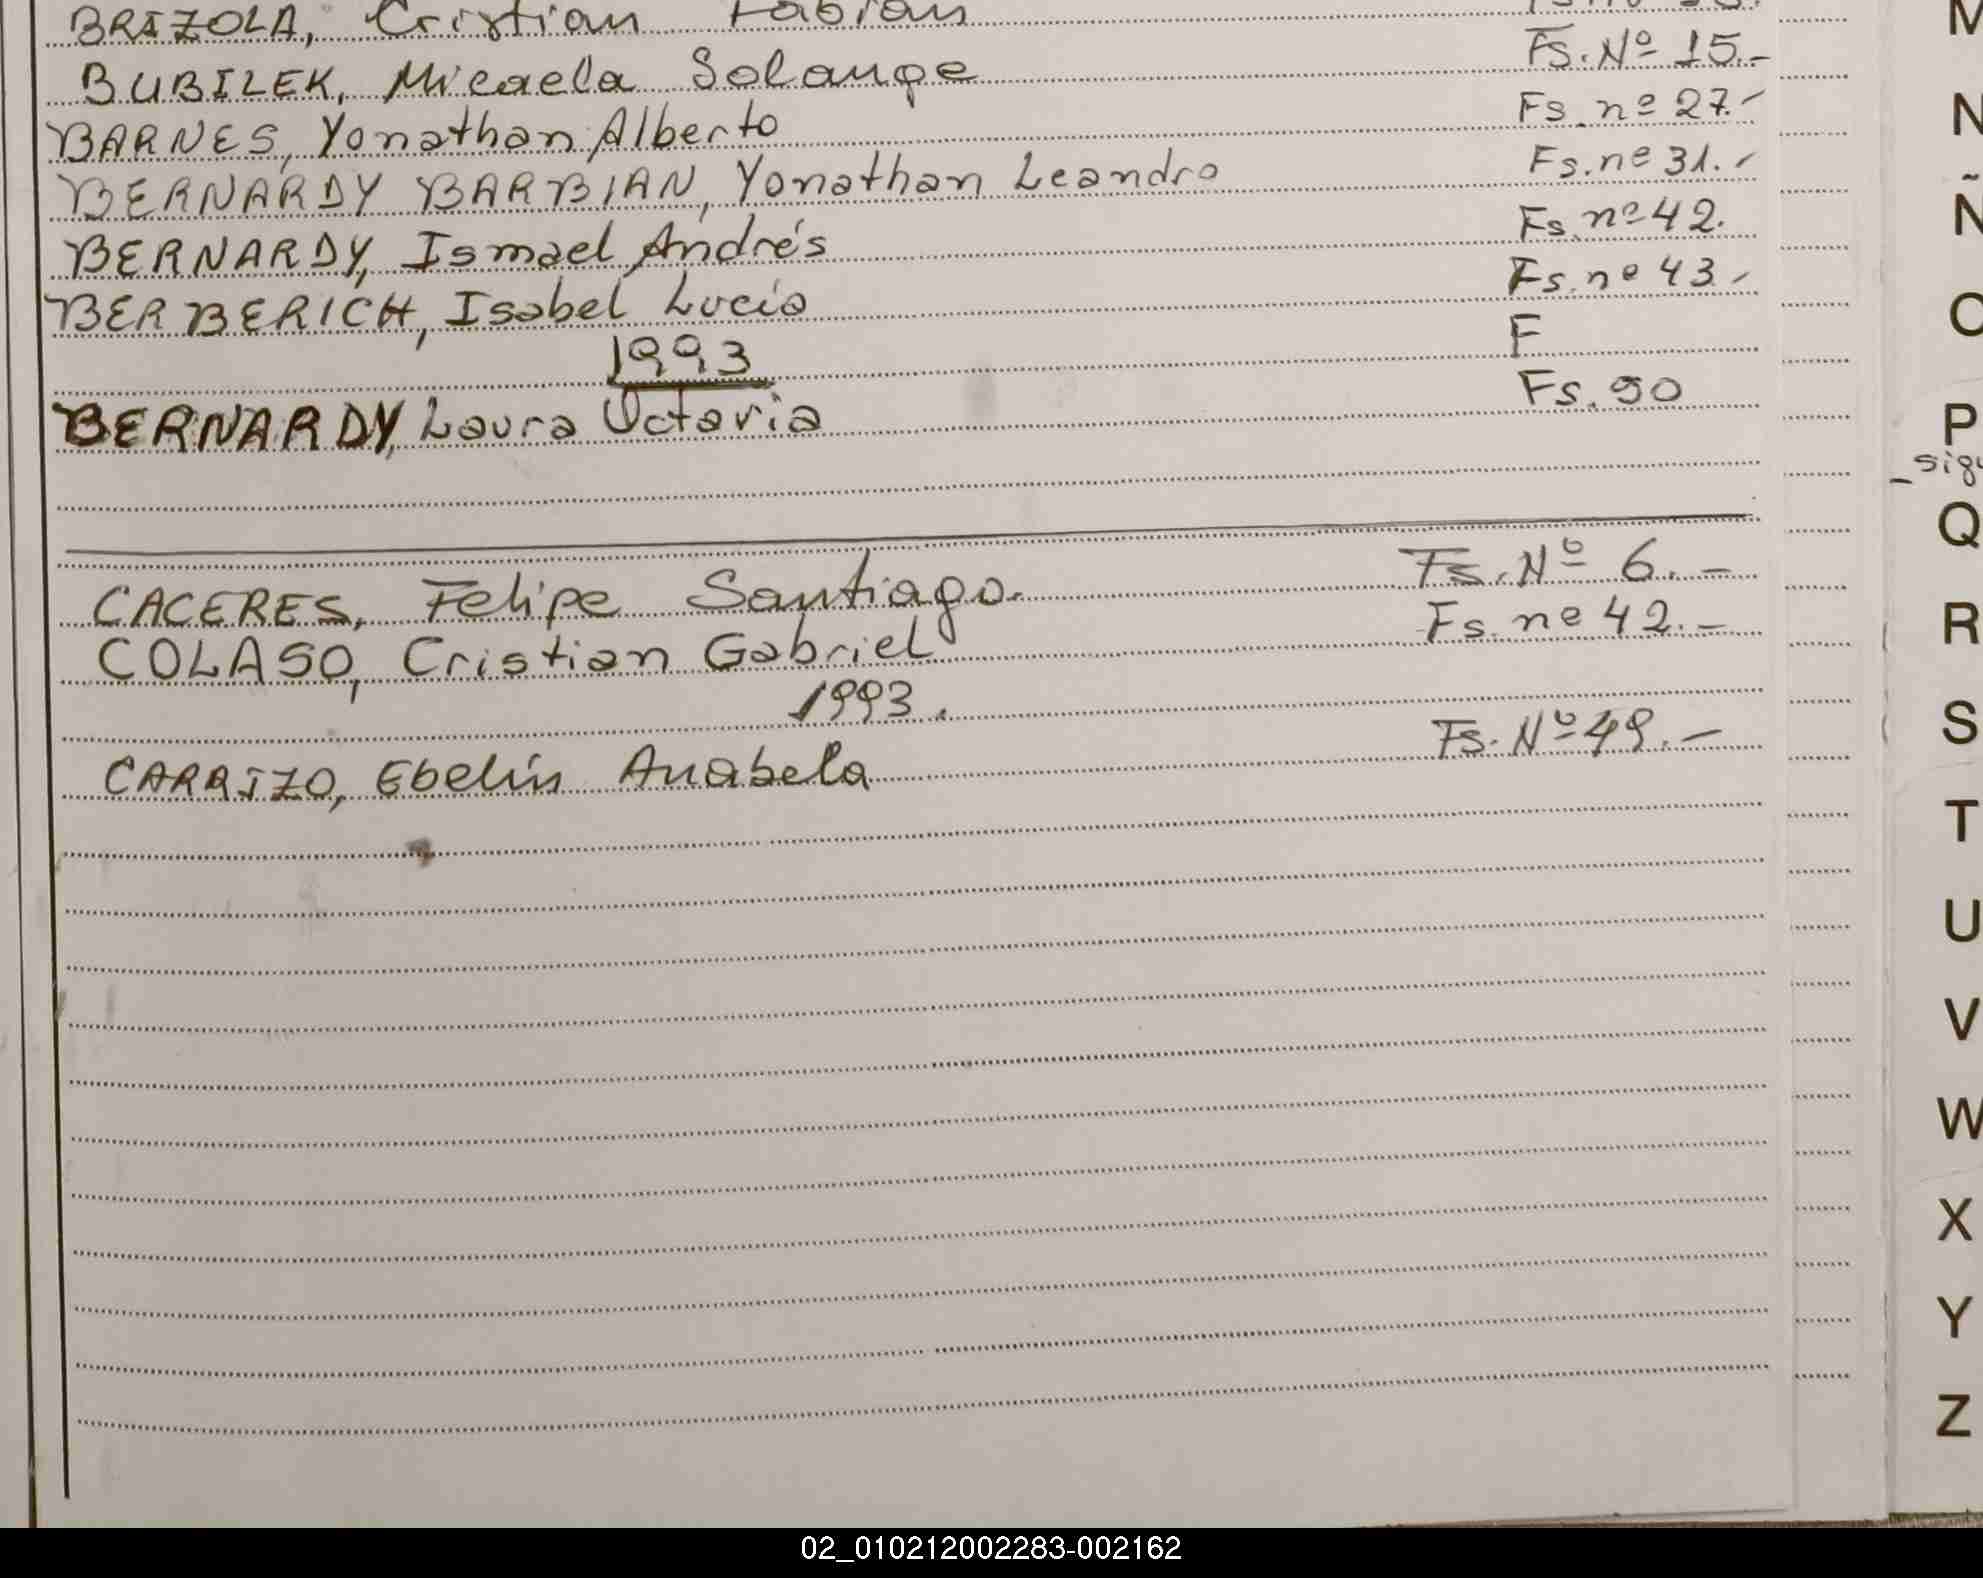 BRIZOLA, Cristian Fabian
BUBILEK, Micaela Solange Fs. Nº 15.-
BARNES, Yonathan Alberto Fs. nº 27.-
BERNARDY BARBIAN, Yonathan Leandro Fs. nº 31.-
BERNARDY, Ismael Andrés Fs. nº 42.
BERBERICH, Isabel Lucia Fs. nº 43.-
1993 F
BERNARDY, Laura Octavia Fs. 90
CACERES, Felipe Santiago. Fs. Nº 6.-
COLASO, Cristian Gabriel Fs. nº 42.-
1993.
CARRIZO, Ebelin Anabela Fs. Nº 49.-
M
N
Ñ
O
P
Q
R
S
T
U
V
W
X
Y
Z
02_010212002283-002162